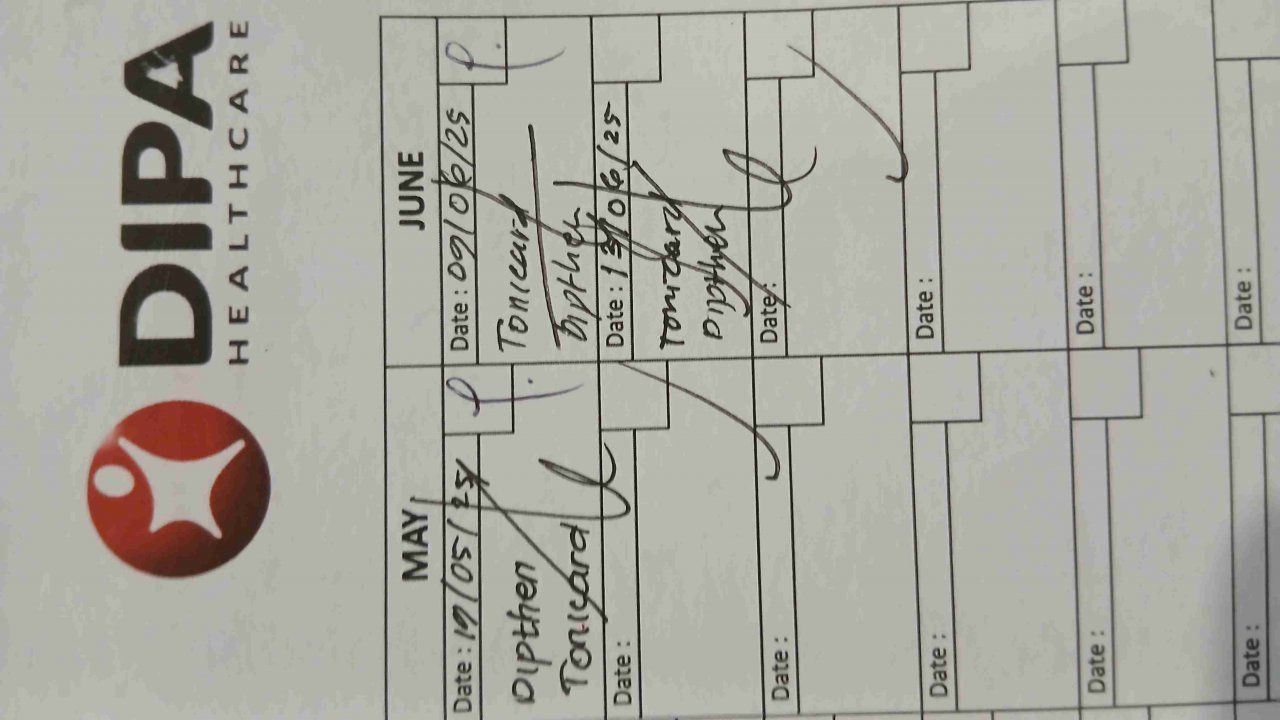 DIPA
HEALTHCARE
MAY
Date : 19/05/25
Dipthen
Tonicard
Date :
Date :
Date :
Date :
Date :
JUNE
Date : 09/06/25
Tonicard
Dipthen
Date : 13/06/25
Tonicard
Dipthen
Date :
Date :
Date :
Date :